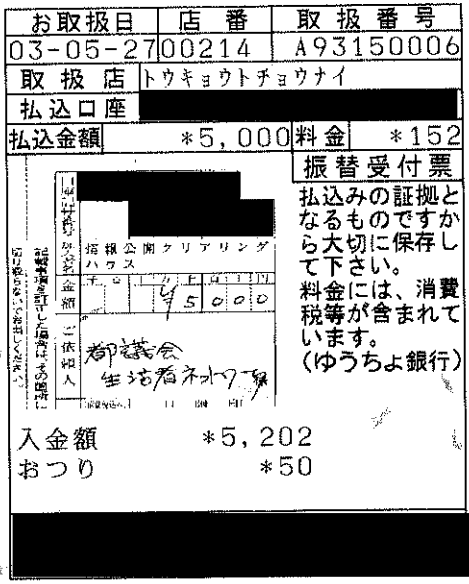 お取扱日 店番 取扱番号
03-05-27 00214 A93150006
取扱店 トウキョウトチョウナイ
払込口座
払込金額 *5,000 料金 *152
振替受付票
払込みの証拠と
なるものですか
ら大切に保存し
て下さい。
料金には、消費
税等が含まれて
います。
(ゆうちょ銀行)
加入者名 情報公開クリアリング
ハウス
金額 ¥5000
ご依頼人 都議会
生活者ネットワーク 様
記載事項を訂正した場合は、その箇所に
切り取らないでお出しください。
入金額 *5,202
おつり *50